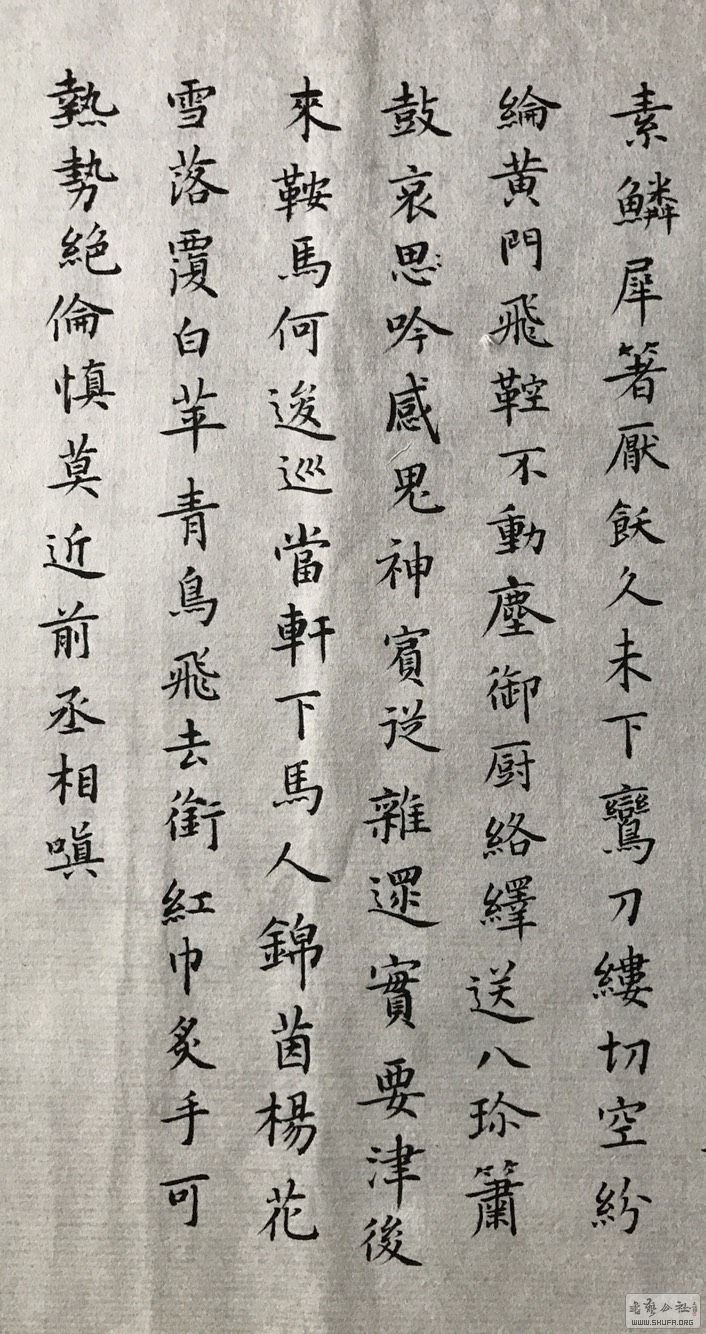 素鱗犀箸厭飫久未下鸞刀縷切空紛
綸黄門飛鞚不動塵御厨絡繹送八珍簫
鼓哀思吟感鬼神賓從雜遝實要津後
來鞍馬何逡巡當軒下馬人錦茵楊花
雪落覆白苹青鳥飛去銜紅巾炙手可
熱勢絶倫慎莫近前丞相嗔
書藝公社
WWW.SHUFA.ORG